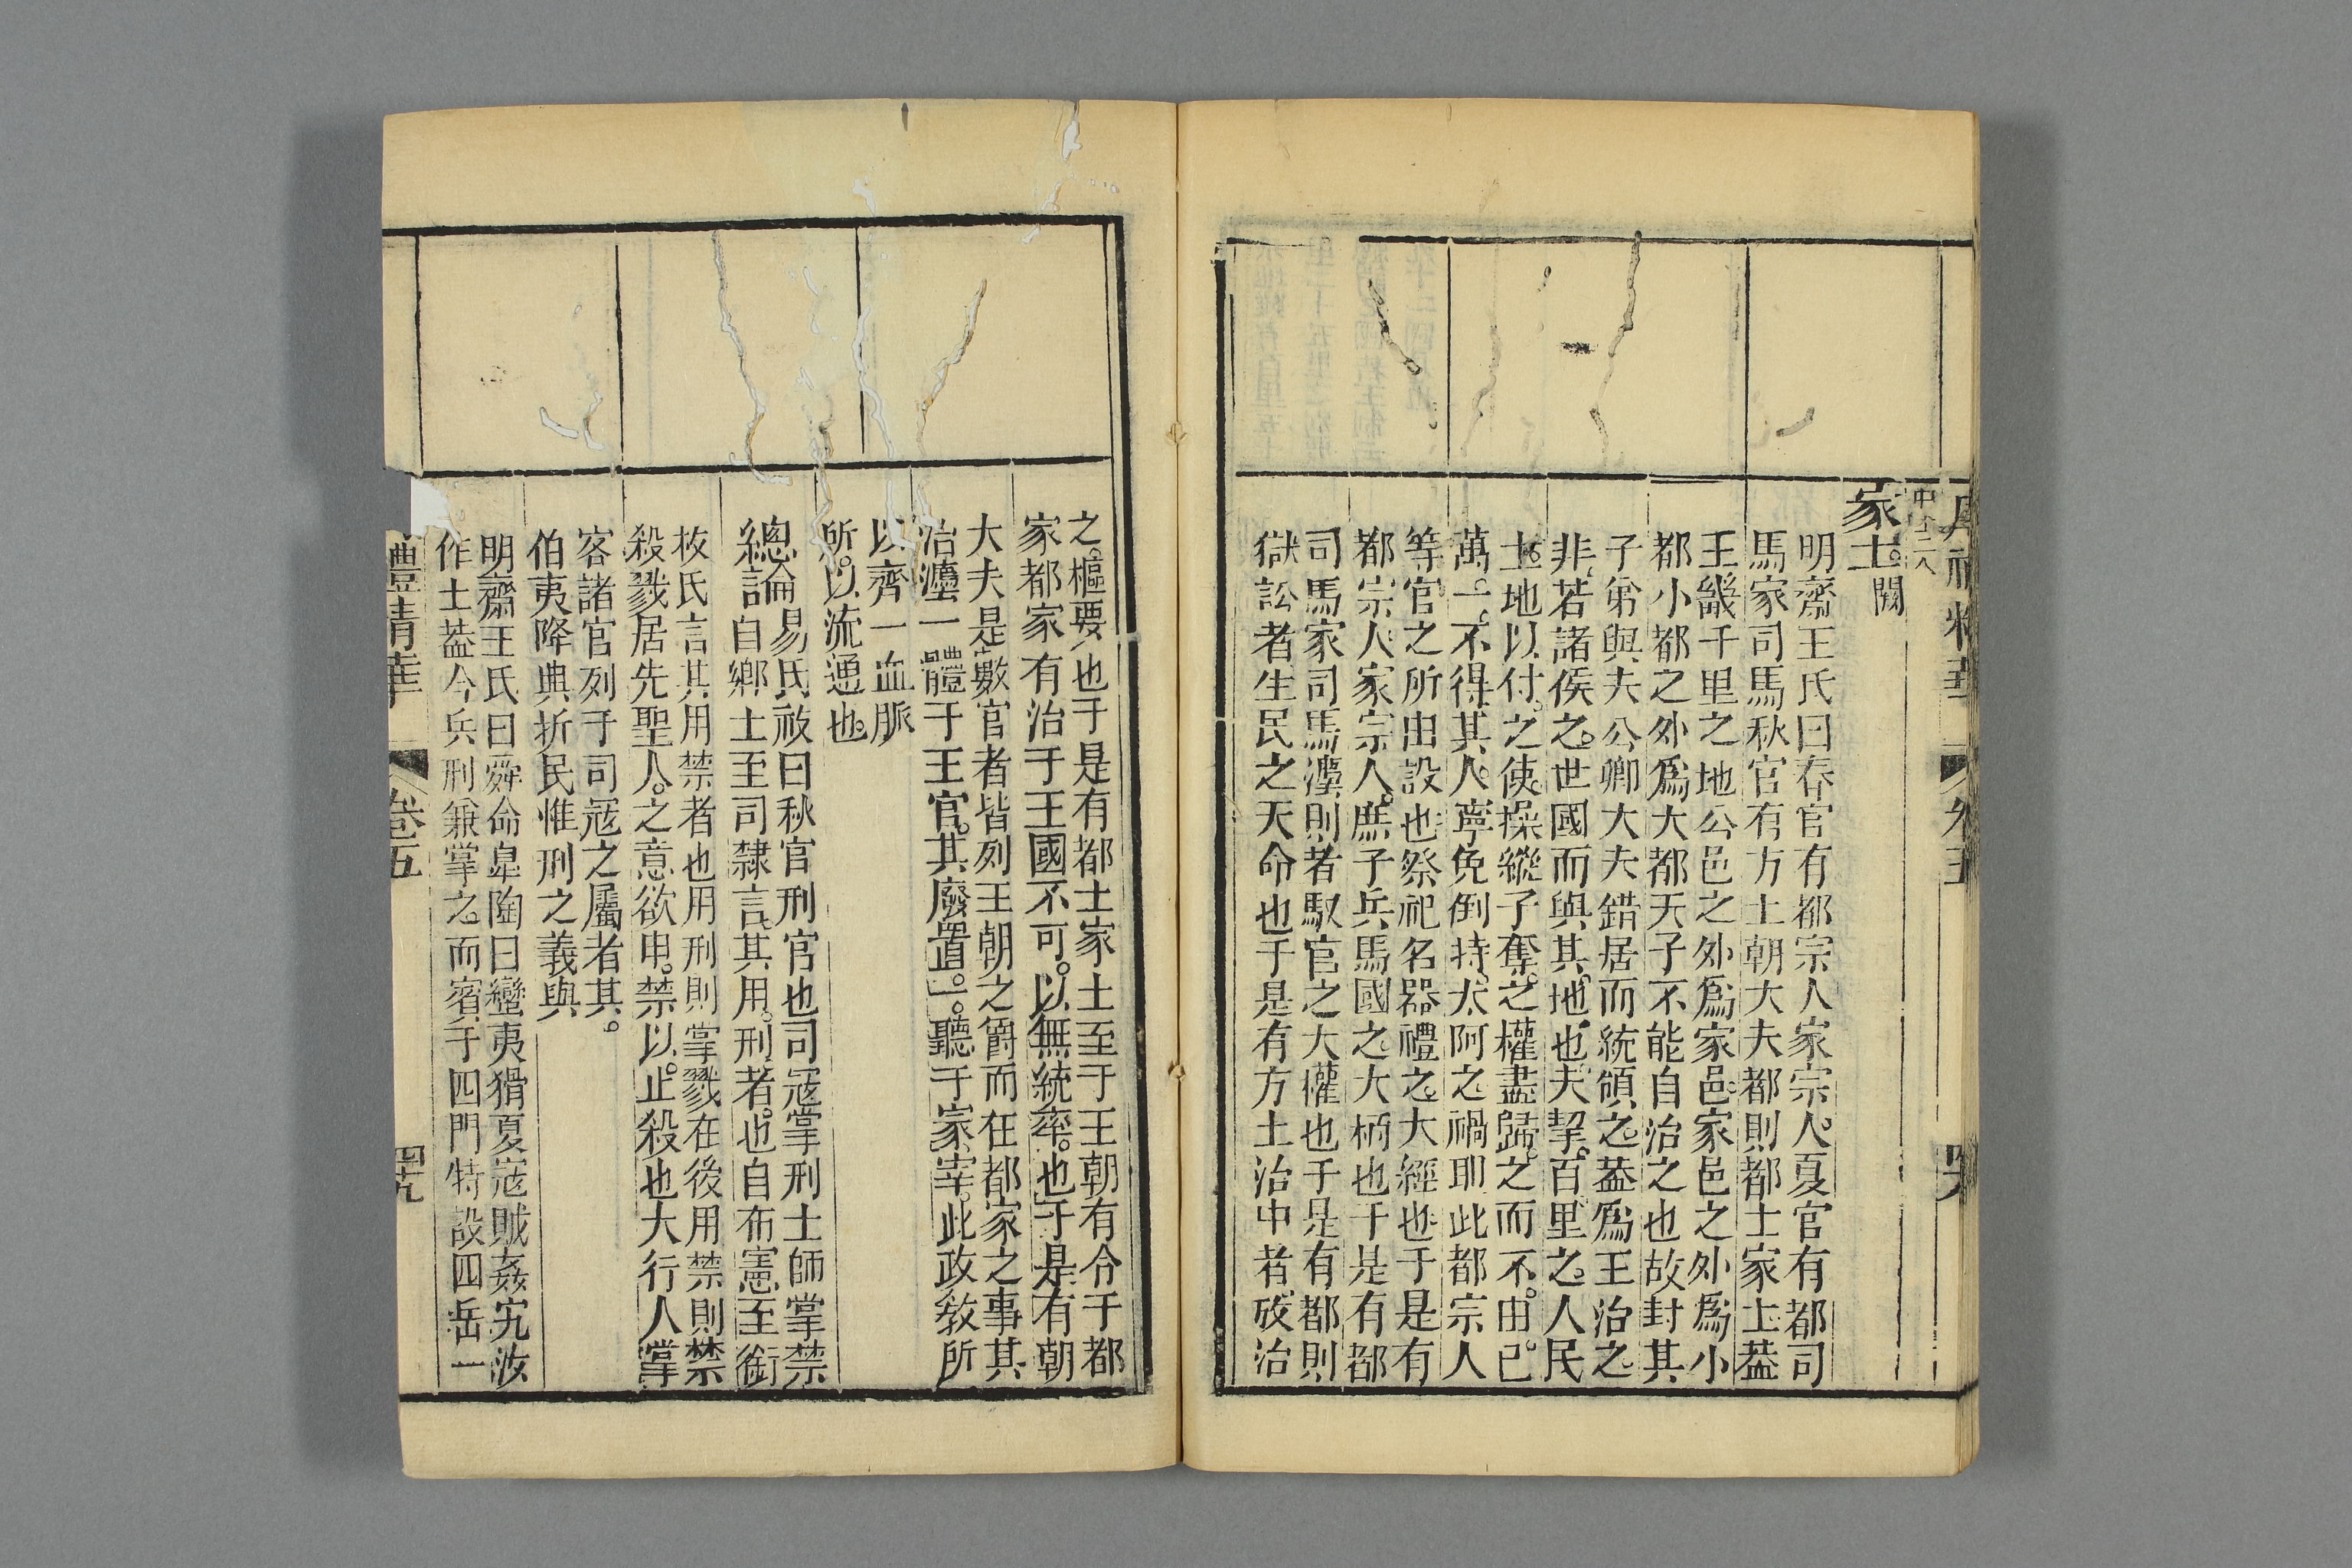 周禮精華 卷五
中士二人
家士闕
明齋王氏曰春官有都宗人家宗人夏官有都司
馬家司馬秋官有方士朝大夫都則都士家士葢
王畿千里之地公邑之外爲家邑家邑之外爲小
都小都之外爲大都天子不能自治之也故封其
子弟與夫公卿大夫錯居而統領之葢爲王治之
非若諸侯之世國而與其地也夫挈百里之人民
土地以付之使操縱予奪之權盡歸之而不由己
萬一不得其人寧免倒持太阿之禍耶此都宗人
等官之所由設也祭祀名器禮之大經也于是有
都宗人家宗人庶子兵馬國之大柄也于是有都
司馬家司馬灋則者馭官之大權也于是有都則
獄訟者生民之天命也于是有方士治中者攷治
之樞要也于是有都士家士至于王朝有令于都
家都家有治于王國不可以無統率也于是有朝
大夫是數官者皆列王朝之爵而在都家之事其
治灋一體于王官其廢置一聽于家宰此政敎所
以齊一血脈
所以流通也
總論易氏祓曰秋官刑官也司寇掌刑士師掌禁
自鄉士至司隸言其用刑者也自布憲至銜
枚氏言其用禁者也用刑則掌戮在後用禁則禁
殺戮居先聖人之意欲申禁以止殺也大行人掌
客諸官列于司寇之屬者其
伯夷降典折民惟刑之義與
明齋王氏曰舜命臯陶曰蠻夷猾夏寇賊姦宄汝
作士葢今兵刑兼掌之而賓于四門特設四岳一
禮精華 卷五 四十九